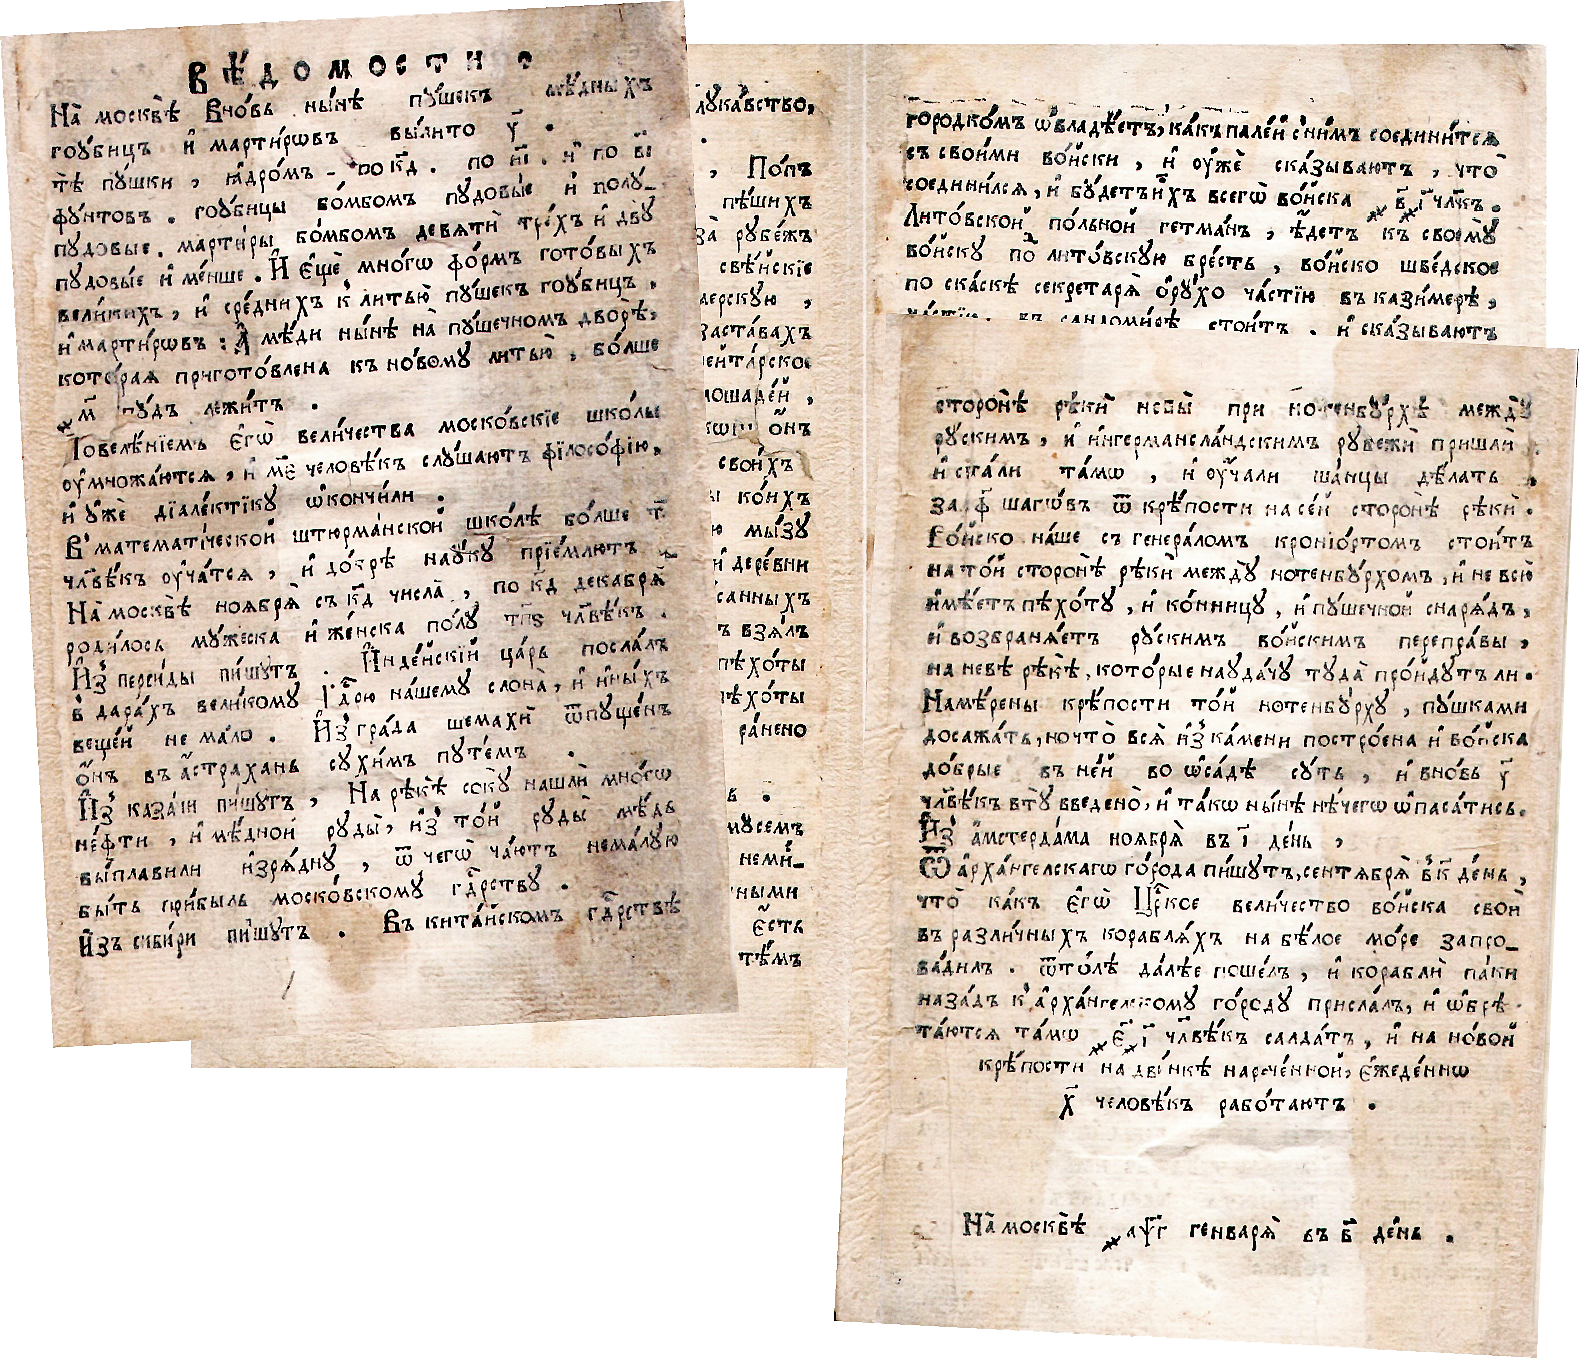 ВѢ́ДОМОСТИ.
На̀ москвѣ̀ вно́вь ны́нѣ пу́шекъ мѣ́дныхъ
гоубицъ и҆ марти́ровъ вы́лито у҃.
тѣ̀ пушки, ꙗ҆дро́мъ по к҃д. по и҃і. и҆ по в҃і
фу́нтовъ. гоубицы бо́мбомъ пудо́вые и҆ полу_
пудовые. марти́ры бо́мбомъ девяти тре́хъ и҆ дву
пудовы́е и҆ ме́нше. И҆ є҆щѐ мно́гѡ фо́рмъ гото́выхъ
вели́кихъ, и҆ сре́днихъ к̾ литью̀ пу́шекъ гоубицъ.
и҆ марти́рѡвъ: А҆ мѣ́ди ны́нѣ на̀ пу́шечномъ дворѣ̀,
кото́рая пригото́влена къ но́вому литью̀, бо́лше
҂м҃ пу́дъ лежи́тъ.
Повелѣ́нїемъ є҆гѡ̀ вели́чества моско́вскїе шко́лы
оу҆множа́ются, и҆ м҃е человѣ́къ слу́шаютъ фїлосо́фїю,
и҆ у҆жѐ дїале́ктїку ѡ҆кончи́ли.
В̾ математі́ческой штюрма́нской шко́лѣ бо́лше т҃
чл҃вѣ́къ оу҆ча́тся, и҆ до́крѣ нау́ку прїе́млютъ.
На̀ москвѣ̀ ноября̀ съ к҃д числа̀, по к҃д декабря̀
роди́лось му́жеска и҆ же́нска по́лу т҃пѕ чл҃вѣ́къ.
И҆з̾ перси́ды пи́шутъ. И҆нде́йскїй ца́рь посла́лъ
в̾ дара́хъ вели́кому Гд҃рю на́шему слона̀, и҆ и҆ны́хъ
веще́й нема́ло. И҆з̾ гра́да шемахѝ ѿпу́щенъ
ѻ҆́нъ въ а҆́страхань сухи́мъ путе́мъ.
И҆з̾ каза́ни пи́шутъ, На рѣкѣ̀ соку̀ нашлѝ мно́гѡ
не́фти, и҆ мѣ́дной руды̀, и҆з̾ то́й руды̀ мѣ́дь
вы́плавили и҆зря́дну, ѿ чегѡ̀ ча́ютъ нема́лую
бы́ть при́быль моско́вскому гд҃рству.
И҆зъ сиби́ри пи́шутъ. Въ кита́йскомъ гд҃рствѣ
лука́вство,
.
, По́пъ
пѣ́шихъ
за̀ рубе́жъ
свѣ́йскїе
,
заста́вахъ
,
ѻ҆́нъ
свои́хъ
ко́ихъ
мы́зу
и҆ дере́вни
ъ взя́лъ
пѣхо́ты
пѣхо́ты
ра́нено
ь.
немѣ_
ными
є҆́сть
тѣ́мъ
городко́мъ ѡ҆владѣ́етъ, ка́къ пале́й с̾ ни́мъ соедини́тся
съ свои́ми во́йски, и҆ оу҆жѐ ска́зываютъ, что̀
соедини́лся, и҆ бу́детъ и҆́хъ всегѡ̀ во́йска ҂в҃і чл҃къ.
Лито́вской по́льной гетма́нъ, ѣ҆́детъ къ своему̀
во́йску по̀ лито́вскую бре́сть, во́йско шве́дское
по ска́скѣ секретаря̀ о҆́ру́хо ча́стїю въ казимерѣ,
ча́стїю въ сандоми́рѣ стои́тъ. и҆ ска́зываютъ
сторонѣ̀ рѣкѝ невы̀ при нотенбу́рхѣ между̀
ру́скимъ, и҆ и҆нгермансла́ндскимъ рубежѝ пришлѝ
и҆ ста́ли та́мѡ, и҆ оу҆ча́ли ша́нцы дѣ́лать
за ф҃ шагѡ́въ ѿ крѣ́пости на се́й сторонѣ̀ рѣкѝ.
Во́йско на́ше съ генера́ломъ кроніо́ртомъ стои́тъ
на то́й сторонѣ̀ рѣкѝ между̀ нотенбу́рхомъ, и҆ невсю̀
и҆мѣ́етъ пѣхо́ту, и҆ ко́нницу, и҆ пу́шечной снаря́дъ,
и҆ возбраня́етъ ру́скимъ во́йскимъ перепра́вы,
на невѣ̀ рѣкѣ̀, кото́рые науда́чу туда̀ про́йдутъ ли.
Намѣ́рены крѣ́пости то́й нотенбу́рху, пу́шками
досажа́ть, но что̀ вся̀ и҆з̾ ка́мени постро́ена и҆ во́йска
до́брые въ не́й во ѡ҆са́дѣ су́ть, и҆ вно́вь у҃
чл҃вѣ́къ в̾ ту̀ введено̀, и҆ та́кѡ ны́нѣ не́чегѡ ѡ҆паса́тись.
И҆з̾ а҆мстерда́ма ноября̀ въ і҃ де́нь,
Ѿ а҆рха́нгелскагѡ го́рода пи́шутъ, сентября̀ в̾ к҃ де́нь,
что̀ ка́къ є҆гѡ̀ Цр҃кое вели́чество во́йска своѝ
въ разли́чныхъ корабля́хъ на бѣ́лое мо́ре запро_
ва́дилъ. ѿто́лѣ да́лѣе поше́лъ, и҆ кораблѝ па́ки
наза́дъ к̾ а҆рха́нгелскому го́роду присла́лъ, и҆ ѡ҆брѣ
та́ются та́мѡ ҂є҃ ҂і҃ чл҃вѣ́къ салда́тъ, и҆ на но́вой
крѣ́пости на дви́нкѣ нарече́нной, є҆жеде́ннѡ
х҃ человѣ́къ рабо́таютъ.
На̀ москвѣ̀ ҂аѱ҃г генваря̀ въ в҃ де́нь.